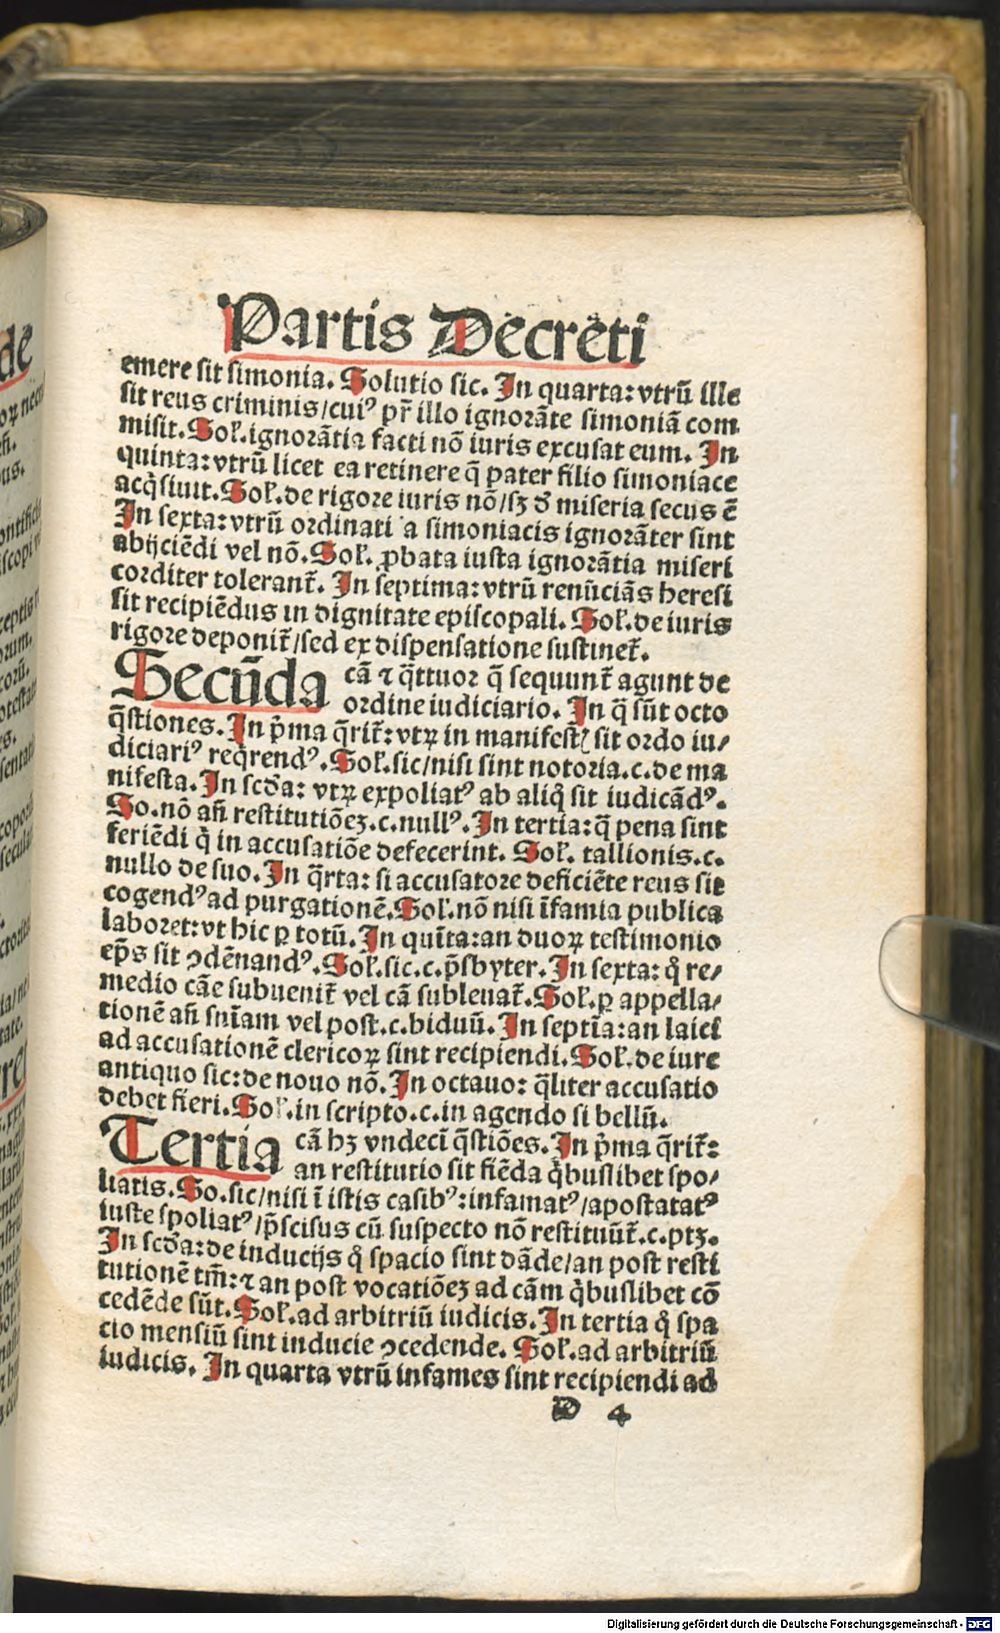 Partis Decreti
emere sit simonia. Solutio sic. In quarta: vtrũ ille
sit reus criminis/cuiꝰ pr̃ illo ignorãte simoniã com
misit. Sol̃. ignorãtia facti nõ iuris excusat eum. In
quinta: vtrũ licet ea retinere q̃ pater filio simoniace
acq̃siuit. Sol̃. de rigore iuris nõ/sꝫ d̃ miseria secus ẽ
In sexta: vtrũ ordinati a simoniacis ignorãter sint
abijciẽdi vel nõ. Sol̃. ꝓbata iusta ignorãtia miseri
corditer tolerant̃. In septima: vtrũ renũciãs heresi
sit recipiẽdus in dignitate episcopali. Sol̃. de iuris
rigore deponit̃/sed ex dispensatione sustinet̃.
Secũda cã ⁊ q̃ttuor q̃ sequunt̃ agunt de
ordine iudiciario. In q̃ sũt octo
q̃stiones. In p̃ma q̃rit̃: vtꝝ in manifestꝭ sit ordo iu/
diciariꝰ req̃rendꝰ. Sol̃. sic/nisi sint notoria. c. de ma
nifesta. In scd̃a: vtꝝ expoliatꝰ ab aliq̃ sit iudicãdꝰ.
So. nõ añ restitutiõeꝫ. c. nullꝰ. In tertia: q̃ pena sint
feriẽdi q̃ in accusatiõe defecerint. Sol̃. tallionis. c.
nullo de suo. In q̃rta: si accusatore deficiẽte reus sit
cogendꝰ ad purgationẽ. Sol̃. nõ nisi ĩfamia publica
laboret: vt hic ꝑ totũ. In quĩta: an duoꝝ testimonio
ep̃s sit ꝯdẽnandꝰ. Sol̃. sic. c. p̃sbyter. In sexta: q̃ re/
medio cãe subuenit̃ vel cã subleuat̃. Sol̃. ꝑ appella/
tionẽ añ snĩam vel post. c. biduũ. In septĩa: an laici
ad accusationẽ clericoꝝ sint recipiendi. Sol̃. de iure
antiquo sic: de nouo nõ. In octauo: q̃liter accusatio
debet fieri. Sol̃. in scripto. c. in agendo si bellũ.
Tertia cã hꝫ vndecĩ q̃stiões. In p̃ma q̃rit̃:
an restitutio sit fiẽda q̃buslibet spo/
liatis. So. sic/nisi ĩ istis casibꝰ: infamatꝰ/apostatatꝰ
iuste spoliatꝰ/p̃scisus cũ suspecto nõ restituũt̃. c. ptꝫ.
In scd̃a: de inducijs q̃ spacio sint dãde/an post resti
tutionẽ tm̃: ⁊ an post vocatiõeꝫ ad cãm q̃buslibet cõ
cedẽde sũt. Sol̃. ad arbitriũ iudicis. In tertia q̃ spa
cio mensiũ sint inducie ꝯcedende. Sol̃. ad arbitriũ
iudicis. In quarta vtrũ infames sint recipiendi ad
D 4
Digitalisierung gefördert durch die Deutsche Forschungsgemeinschaft - DFG